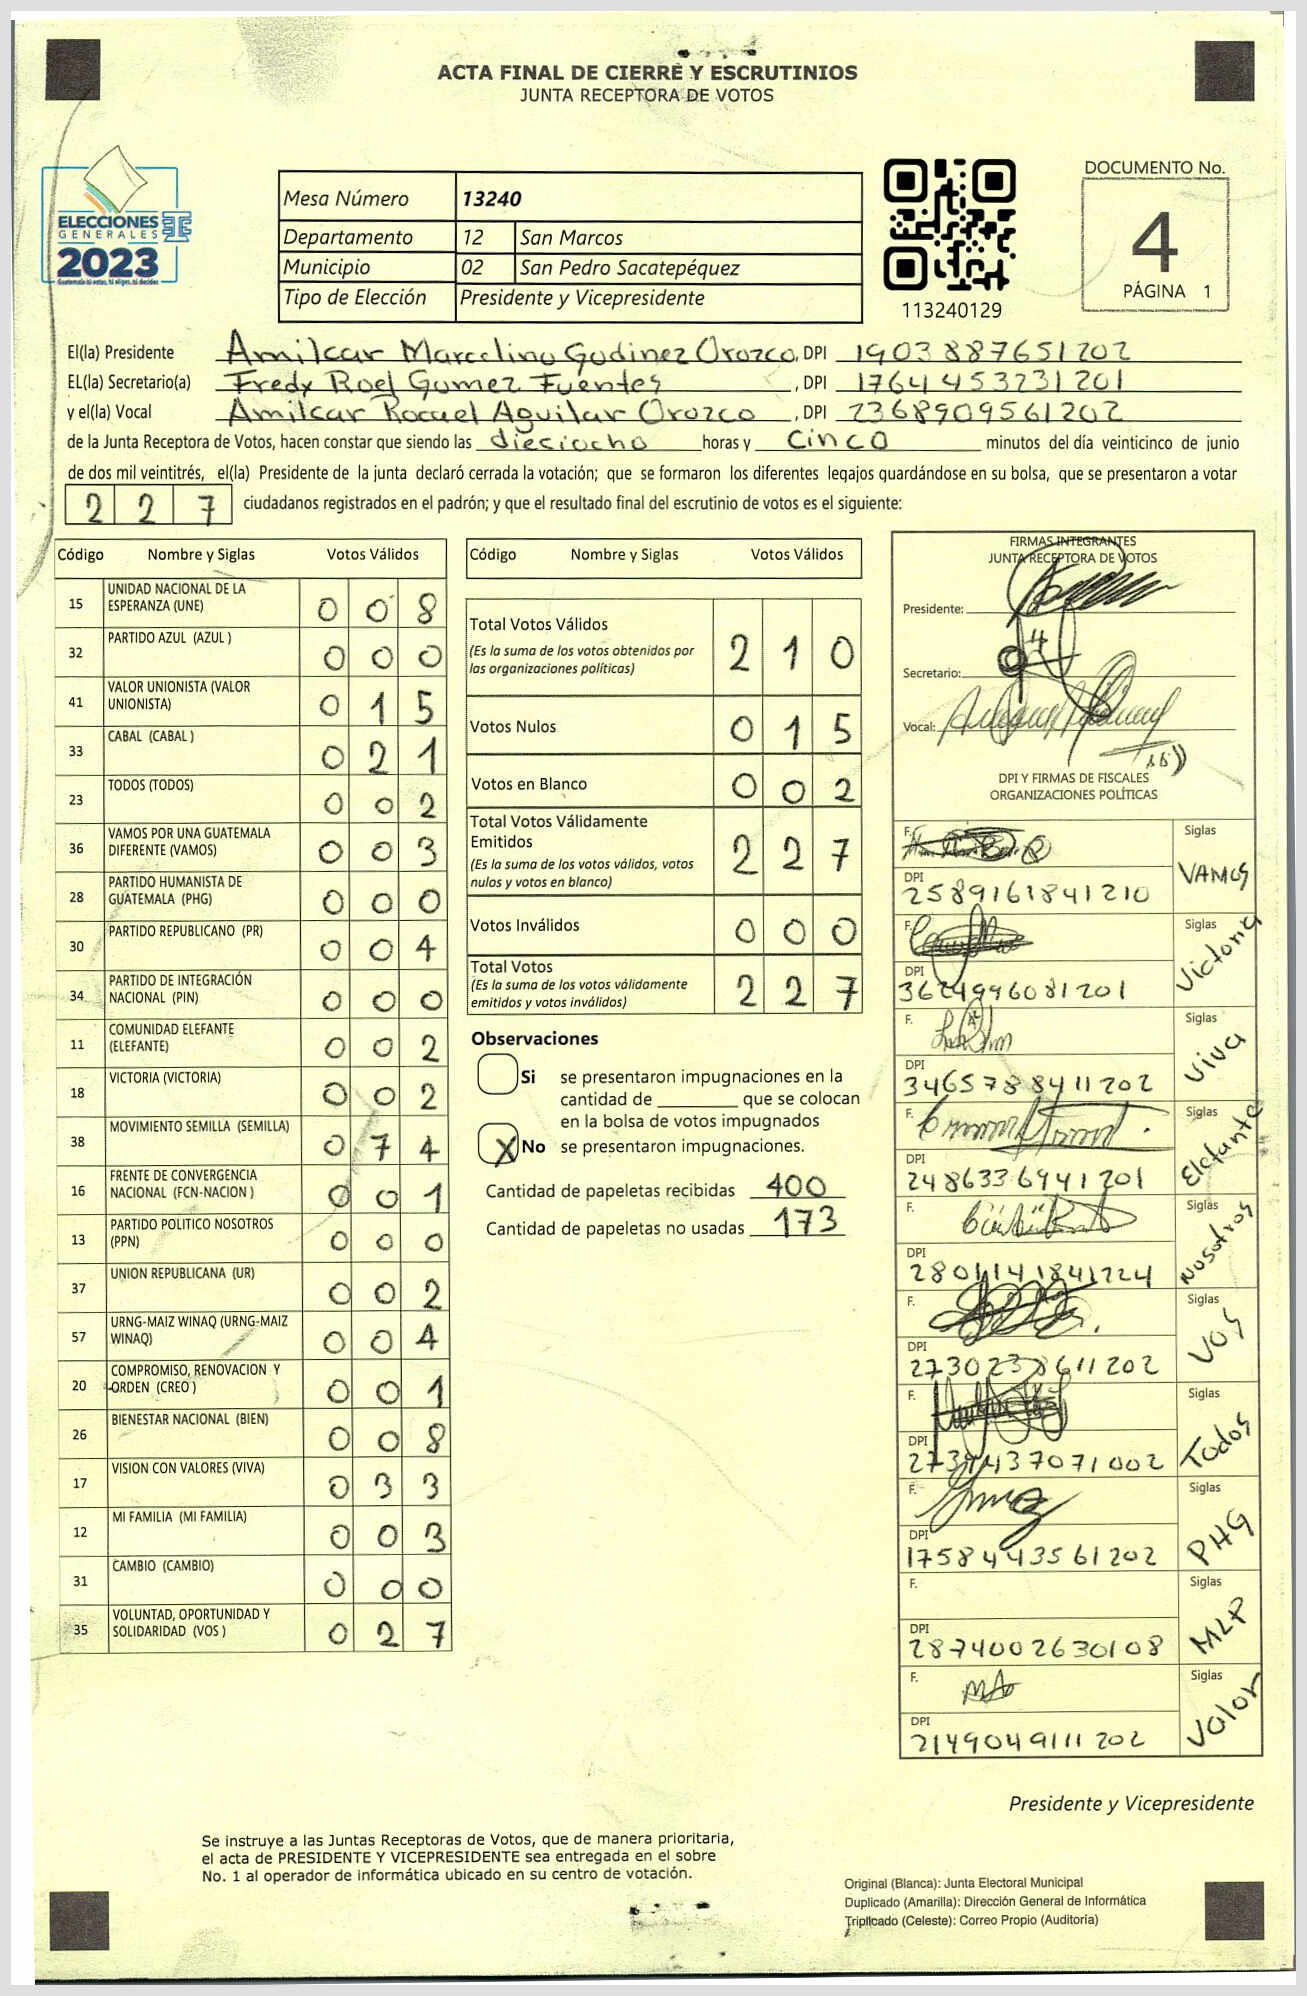 ACTA FINAL DE CIERRE Y ESCRUTINIOS
JUNTA RECEPTORA DE VOTOS
ELECCIONES
GENERALES
2023
Guatemala tú votas, tú eliges, tú decides
Mesa Número 13240
Departamento 12 San Marcos
Municipio 02 San Pedro Sacatepéquez
Tipo de Elección Presidente y Vicepresidente
113240129
DOCUMENTO No.
4
PÁGINA 1
El(la) Presidente Amilcar Marcelino Godinez Orozco, DPI 1903887651202
EL(la) Secretario(a) Fredy Roel Gomez Fuentes, DPI 1764453231201
y el(la) Vocal Amilcar Rocael Aguilar Orozco, DPI 2368909561202
de la Junta Receptora de Votos, hacen constar que siendo las dieciocho horas y cinco minutos del día veinticinco de junio
de dos mil veintitrés, el(la) Presidente de la junta declaró cerrada la votación; que se formaron los diferentes legajos guardándose en su bolsa, que se presentaron a votar
227 ciudadanos registrados en el padrón; y que el resultado final del escrutinio de votos es el siguiente:
Código Nombre y Siglas Votos Válidos
15 UNIDAD NACIONAL DE LA ESPERANZA (UNE) 008
32 PARTIDO AZUL (AZUL ) 000
41 VALOR UNIONISTA (VALOR UNIONISTA) 015
33 CABAL (CABAL ) 021
23 TODOS (TODOS) 002
36 VAMOS POR UNA GUATEMALA DIFERENTE (VAMOS) 003
28 PARTIDO HUMANISTA DE GUATEMALA (PHG) 000
30 PARTIDO REPUBLICANO (PR) 004
34 PARTIDO DE INTEGRACIÓN NACIONAL (PIN) 000
11 COMUNIDAD ELEFANTE (ELEFANTE) 002
18 VICTORIA (VICTORIA) 002
38 MOVIMIENTO SEMILLA (SEMILLA) 074
16 FRENTE DE CONVERGENCIA NACIONAL (FCN-NACION ) 001
13 PARTIDO POLITICO NOSOTROS (PPN) 000
37 UNION REPUBLICANA (UR) 002
57 URNG-MAIZ WINAQ (URNG-MAIZ WINAQ) 004
20 COMPROMISO, RENOVACION Y ORDEN (CREO ) 001
26 BIENESTAR NACIONAL (BIEN) 008
17 VISION CON VALORES (VIVA) 033
12 MI FAMILIA (MI FAMILIA) 003
31 CAMBIO (CAMBIO) 000
35 VOLUNTAD, OPORTUNIDAD Y SOLIDARIDAD (VOS ) 027
Código Nombre y Siglas Votos Válidos
Total Votos Válidos 210
(Es la suma de los votos obtenidos por las organizaciones políticas)
Votos Nulos 015
Votos en Blanco 002
Total Votos Válidamente Emitidos 227
(Es la suma de los votos válidos, votos nulos y votos en blanco)
Votos Inválidos 000
Total Votos 227
(Es la suma de los votos válidamente emitidos y votos inválidos)
Observaciones
Si se presentaron impugnaciones en la
cantidad de ________ que se colocan
en la bolsa de votos impugnados
X No se presentaron impugnaciones.
Cantidad de papeletas recibidas 400
Cantidad de papeletas no usadas 173
FIRMAS INTEGRANTES
JUNTA RECEPTORA DE VOTOS
Presidente:
Secretario:
Vocal:
DPI Y FIRMAS DE FISCALES
ORGANIZACIONES POLÍTICAS
F. Siglas VAMOS
DPI 2589161841210
F. Siglas Victoria
DPI 3624996081201
F. Siglas Viva
DPI 3465788411202
F. Siglas Elefante
DPI 2486336941201
F. Siglas Nosotros
DPI 2801141841224
F. Siglas VOS
DPI 2730238611202
F. Siglas Todos
DPI
F. Siglas PHG
DPI 1758443561202
F. Siglas MLP
DPI 2874002630108
F. Siglas Valor
DPI 2149049111202
Presidente y Vicepresidente
Se instruye a las Juntas Receptoras de Votos, que de manera prioritaria,
el acta de PRESIDENTE Y VICEPRESIDENTE sea entregada en el sobre
No. 1 al operador de informática ubicado en su centro de votación.
Original (Blanca): Junta Electoral Municipal
Duplicado (Amarilla): Dirección General de Informática
Triplicado (Celeste): Correo Propio (Auditoría)